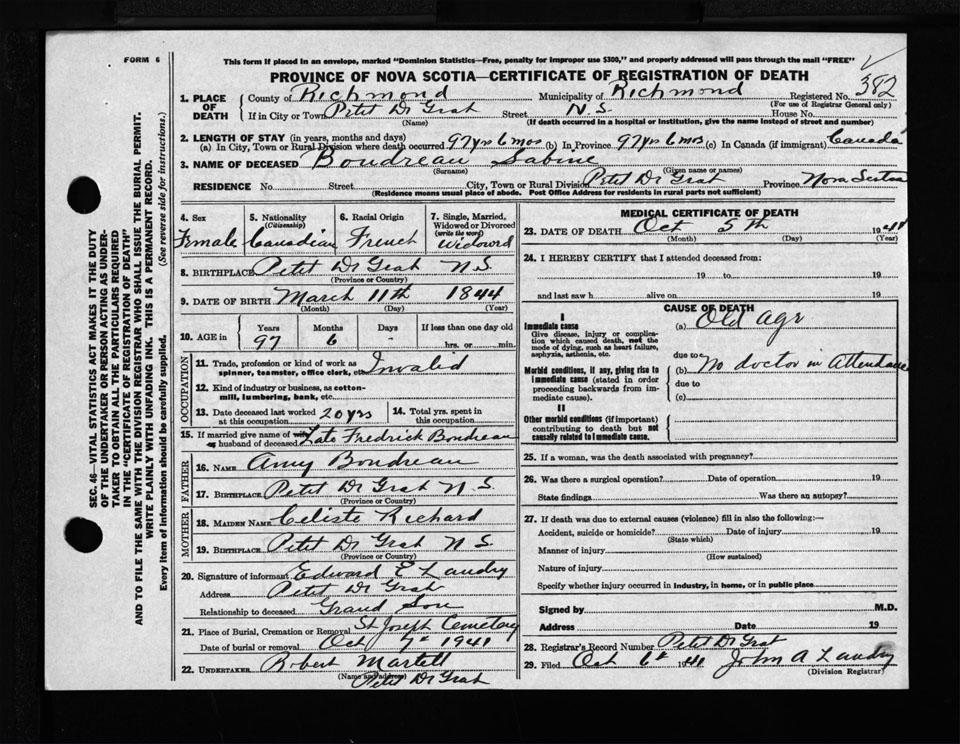 FORM 6
This form if placed in an envelope, marked "Dominion Statistics—Free, penalty for improper use $300," and properly addressed will pass through the mail "FREE"
PROVINCE OF NOVA SCOTIA—CERTIFICATE OF REGISTRATION OF DEATH
382
1. PLACE OF DEATH County of Richmond Municipality of Richmond Registered No.
(For use of Registrar General only)
If in City or Town Petit Dr Grat Street N.S. House No.
(Name) (If death occurred in a hospital or institution, give the name instead of street and number)
2. LENGTH OF STAY (in years, months and days)
(a) In City, Town or Rural Division where death occurred 97 yrs 6 mos (b) In Province 97 yrs 6 mos (c) In Canada (if immigrant) Canada
3. NAME OF DECEASED Boudreau Sabine
(Surname) (Given name or names)
RESIDENCE No. Street City, Town or Rural Division Petit Dr Grat Province Nova Scotia
(Residence means usual place of abode. Post Office Address for residents in rural parts not sufficient)
SEC. 46—VITAL STATISTICS ACT MAKES IT THE DUTY
OF THE UNDERTAKER OR PERSON ACTING AS UNDER-
TAKER TO OBTAIN ALL THE PARTICULARS REQUIRED
IN THE "CERTIFICATE OF REGISTRATION OF DEATH"
AND TO FILE THE SAME WITH THE DIVISION REGISTRAR WHO SHALL ISSUE THE BURIAL PERMIT.
WRITE PLAINLY WITH UNFADING INK. THIS IS A PERMANENT RECORD.
Every item of information should be carefully supplied. (See reverse side for instructions.)
4. Sex
Female
5. Nationality
(Citizenship)
Canadian
6. Racial Origin
French
7. Single, Married,
Widowed or Divorced
(write the word)
Widowed
8. BIRTHPLACE Petit Dr Grat N.S.
(Province or Country)
9. DATE OF BIRTH March 11th 1844
(Month) (Day) (Year)
10. AGE in Years Months Days If less than one day old
97 6 - hrs. or min.
OCCUPATION
11. Trade, profession or kind of work as
spinner, teamster, office clerk, etc. Invalid
12. Kind of industry or business, as cotton-
mill, lumbering, bank, etc.
13. Date deceased last worked
at this occupation 20 yrs
14. Total yrs. spent in
this occupation
15. If married give name of wife
or husband of deceased Late Fredrick Boudreau
FATHER
16. NAME Amy Boudreau
17. BIRTHPLACE Petit Dr Grat N.S.
(Province or Country)
MOTHER
18. MAIDEN NAME Celiste Richard
19. BIRTHPLACE Petit Dr Grat N S
(Province or Country)
20. Signature of informant Edward E Landry
Address Petit Dr Grat
Relationship to deceased Grand Son
21. Place of Burial, Cremation or Removal St Joseph Cemetary
Date of burial or removal Oct 7th 1941
22. UNDERTAKER Robert Martell
(Name and address)
Petit Dr Grat
MEDICAL CERTIFICATE OF DEATH
23. DATE OF DEATH Oct 5th 1941
(Month) (Day) (Year)
24. I HEREBY CERTIFY that I attended deceased from:
19 to 19
and last saw h alive on 19
CAUSE OF DEATH
I
Immediate cause (a) Old Age
Give disease, injury or complica-
tion which caused death, not the
mode of dying, such as heart failure,
asphyxia, asthenia, etc.
due to
Morbid conditions, if any, giving rise to
immediate cause (stated in order
proceeding backwards from im-
mediate cause).
(b) No doctor in Attendance
due to
(c)
II
Other morbid conditions (if important)
contributing to death but not
causally related to immediate cause.
25. If a woman, was the death associated with pregnancy?
26. Was there a surgical operation? Date of operation 19
State findings Was there an autopsy?
27. If death was due to external causes (violence) fill in also the following:—
Accident, suicide or homicide? Date of injury 19
(State which)
Manner of injury
(How sustained)
Nature of injury
Specify whether injury occurred in industry, in home, or in public place
Signed by M.D.
Address Date 19
28. Registrar's Record Number Petit Dr Grat
29. Filed Oct 6th 1941 John A Landry
(Division Registrar)